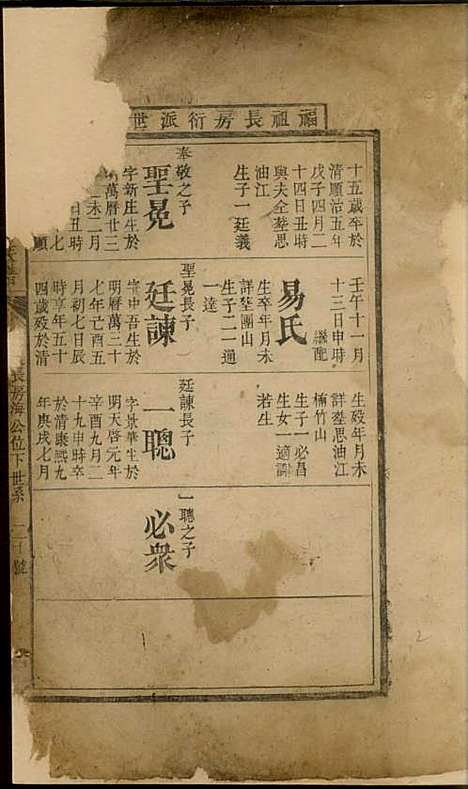 福祖長房衍派世
十五歲卒於
清順治五年
戊子四月二
十四日丑時
與夫仝塟思
油江
生子一廷義
奉敬之子
聖晃
字新庄生於
萬曆廿三
未二月
日丑時
七
順
壬午十一月
十三日申時
繼配
易氏
生卒年月未
詳塟團山
生子二一通
一達
聖晃長子
廷諫
字中吾生於
明曆萬二十
七年亡酉五
月初七日辰
時享年五十
四歲歿於清
生歿年月未
詳塟思油江
楠竹山
生子一必昌
生女一適謝
若生
廷諫長子
一聰
字景華生於
明天啓元年
辛酉九月二
十九申時卒
於清康熙九
年庚戌七月
一聰之子
必衆
長房海公位下世系
二十
號